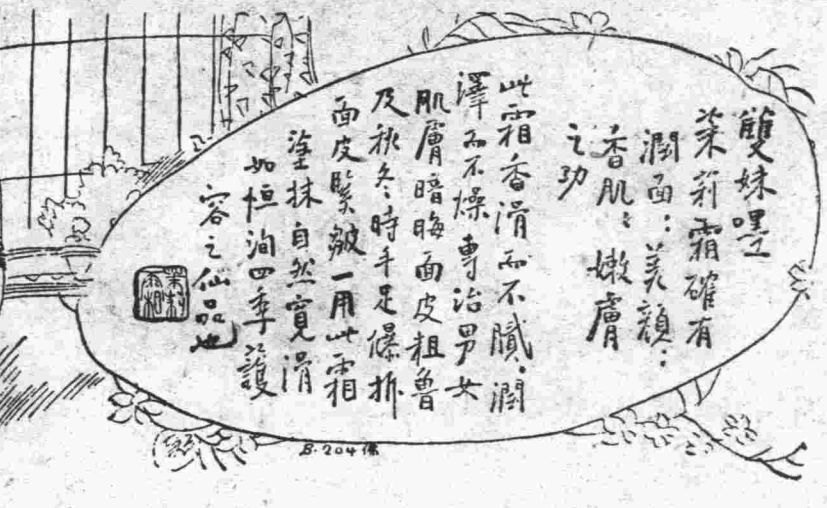 雙妹嘜
茉莉霜確有
潤面:美顏:
香肌:嫩膚
之功
此霜香滑而不膩.潤
澤而不燥專治男女
肌膚暗晦面皮粗魯
及秋冬時手足爆拆
面皮縐皺一用此霜
塗抹自然寬滑
如恒洵四季護
容之仙品也
茉莉霜
B.204